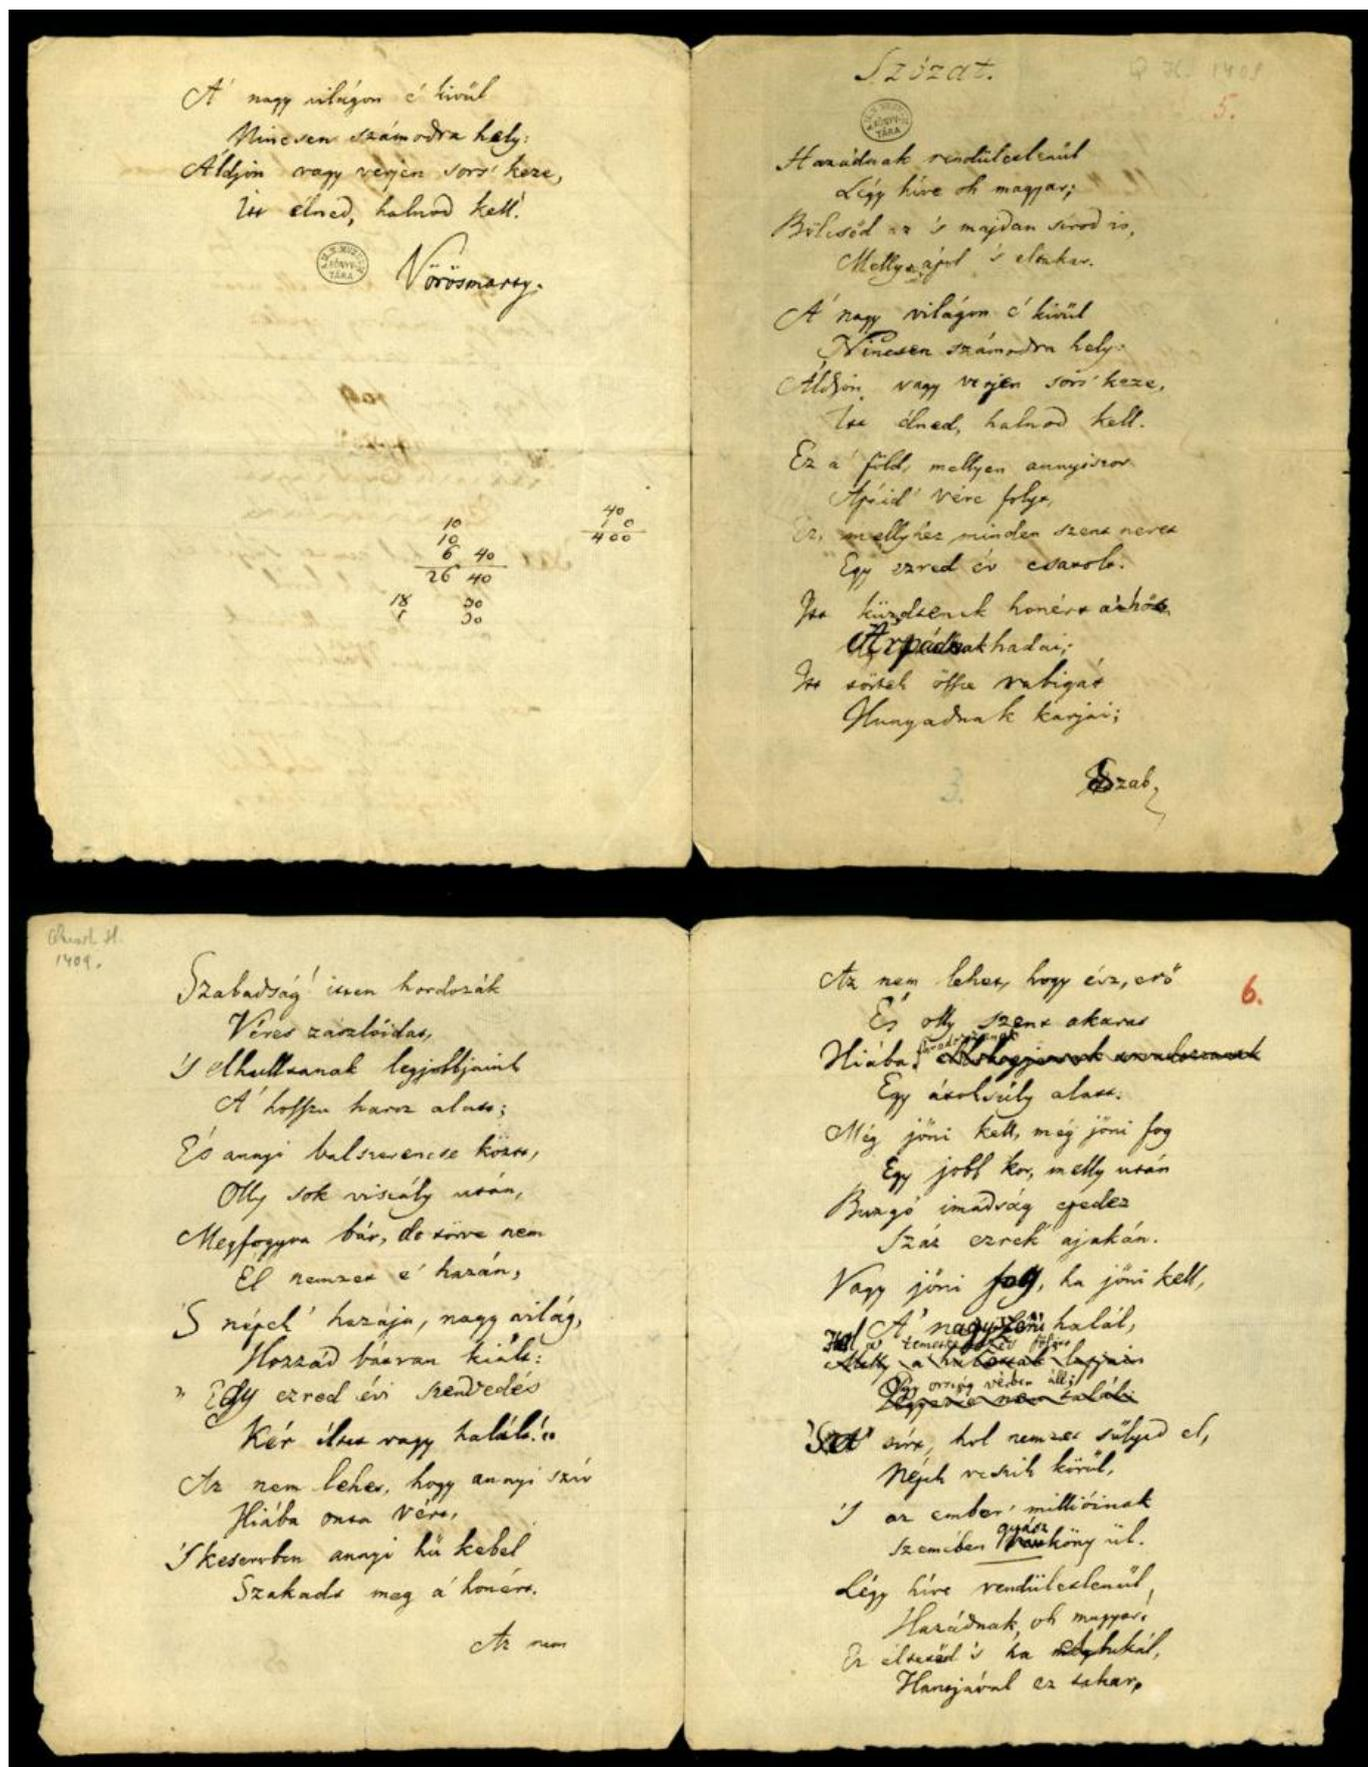 A' nagy világon é kivül
Nincsen számodra hely:
Áldjon vagy verjen sors' keze,
Itt élned, halnod kell!
Vörösmarty.
M. N. MUZEUM KÖNYV-TÁRA
10
10
6 40
26 40
18 30
1 30
40
10
400
Szózat.
Q. H. 1409
5.
KÖNYV-TÁRA
Hazádnak rendületlenül
Légy híve oh magyar;
Bölcsőd az 's majdan sírod is,
Melly ápol 's eltakar.
A' nagy világon é' kivül
Nincsen számodra hely:
Áldjon vagy verjen sors' keze,
Itt élned, halnod kell.
Ez a' föld, mellyen annyiszor
Apáid' vére folyt,
Ez, mellyhez minden szent nevet
Egy ezred év csatolt.
Itt küzdtenek honért a' hős
Árpádnak hadai;
Itt törtek össze rabigát
Hunyadnak karjai;
Szab,
3.
Quart. H.
1409.
Szabadság! itten hordozák
Véres zászlóidat,
'S elhulltanak legjobbjaink
A' hosszu harcz alatt;
És annyi balszerencse közt,
Olly sok viszály után,
Megfogyva bár, de törve nem
Él nemzet e' hazán,
'S népek' hazája, nagy világ,
Hozzád bátran kiált:
„ Egy ezred évi szenvedés
Kér éltet vagy halált!"
Az nem lehet, hogy annyi szív
Hiába onta vért,
'S keservben annyi hű kebel
Szakadt meg a' honért.
Az nem
Az nem lehet, hogy ész, erő
És olly szent akarat
6.
Hiába sorvadozzanak
Egy átoksúly alatt.
Még jőni kell, még jőni fog
Egy jobb kor, melly után
Buzgó imádság epedez
Száz ezrek' ajakán.
Vagy jőni fog, ha jőni kell,
A' nagyszerü halál,
Hol a' temetkezés fölött
Egy ország vérben áll;
'S a' sírt, hol nemzet sülyed el,
Népek veszik körül,
'S az ember' millióinak
Szemében gyászköny ül.
Légy híve rendületlenül,
Hazádnak, oh magyar!
Ez éltetőd 's ha elbukál,
Hantjával ez takar,